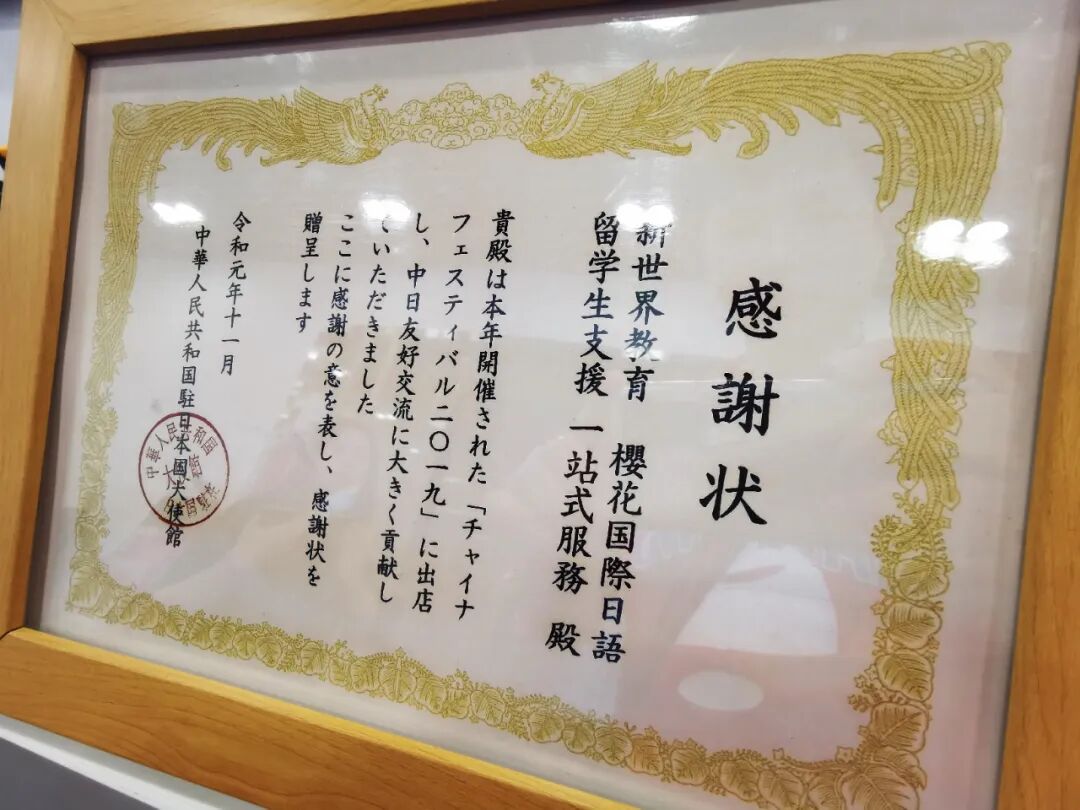 感謝状
新世界教育 櫻花国際日語
留学生支援一站式服務 殿
貴殿は本年開催された「チャイナ
フェスティバル二〇一九」に出店
し、中日友好交流に大きく貢献し
ていただきました
ここに感謝の意を表し、感謝状を
贈呈します
令和元年十一月
中華人民共和国駐日本国大使館